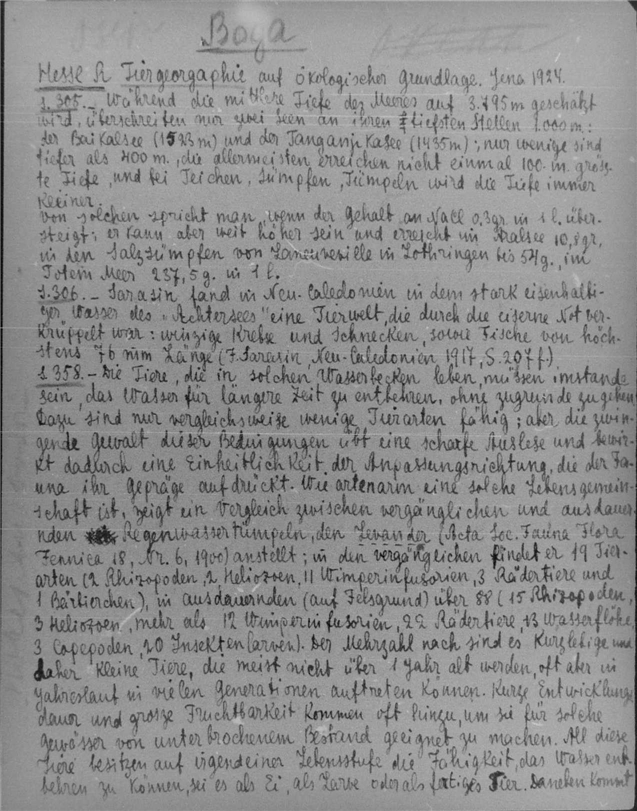 "Boga
Hesse R Tiergeorgaphie auf ökologischer Grundlage. Jena 1924.
S. 305. - Während die mittlere Tiefe des Meeres auf 3.795m geschätzt
wird, überschreiten nur zwei Seen an ihren tiefsten Stellen 1.000 m:
der Baikalsee (1523 m) und der Tanganjikasee (1435 m); nur wenige sind
tiefer als 400 m, die allermeisten erreichen nicht einmal 100. m. grösz-
te Tiefe, und bei Teichen, Sümpfen, Tümpeln wird die Tiefe immer
kleiner.
von solchen spricht man, wenn der Gehalt an NaCl 0,3gr. in 1 l. über-
steigt; er kann aber weit höher sein und erreicht im Aralsee 10,8gr,
in den Salzsümpfen von Laneuveville in Lothringen bis 54g., im
Totem Meer 237,5 g. in 1 l.
S. 306. - Sarasin fand in Neu-Caledonien in dem stark eisenhalti-
gen Wasser des "Achtersees" eine Tierwelt, die durch die eiserne Not ver-
krüppelt war: winzige Krebse und Schnecken, sowie Fische von höch-
stens 76 mm Länge (F. Sarasin Neu-Caledonien 1917, S. 207 f.)
S. 358. - Die Tiere, die in solchen Wasserbecken leben, müssen imstande
sein, das Wasser für längere Zeit zu entbehren, ohne zugrunde zu gehen.
Dazu sind nur vergleichsweise wenige Tierarten fähig; aber die zwin-
gende Gewalt dieser Bedingungen übt eine scharfe Auslese und bewir-
kt dadurch eine Einheitlichkeit der Anpassungsrichtung, die der Fa-
una ihr Gepräge aufdrückt. Wie artenarm eine solche Lebensgemein-
schaft ist, zeigt ein Vergleich zwischen vergänglichen und ausdauer-
nden Regenwassertümpeln, den Levander (Acta Soc. Fauna Flora
Fennica 18, Nr. 6, 1900) anstellt; in den vergänglichen findet er 19 Tier-
arten (2 Rhizopoden, 2 Heliozoen, 11 Wimperinfusorien, 3 Rädertiere und
1 Bärtierchen), in ausdauernden (auf Felsgrund) über 88 (15 Rhizopoden,
3 Heliozoen, mehr als 12 Wimperinfusorien, 22 Rädertiere, 13 Wasserflöhe,
3 Copepoden, 20 Insektenlarven). Der Mehrzahl nach sind es Kurzlebige und
daher kleine Tiere, die meist nicht über 1 Jahr alt werden, oft aber im
Jahreslauf in vielen Generationen auftreten können. Kurze Entwicklungs
dauer und grosze Fruchtbarkeit kommen oft hinzu, um sie für solche
Gewässer von unterbrochenem Bestand geeignet zu machen. All diese
Tiere besitzen auf irgendeiner Lebensstufe die Fähigkeit, das Wasser ent-
behren zu können, sei es als Ei, als Larve oder als fertiges Tier. Daneben kommt